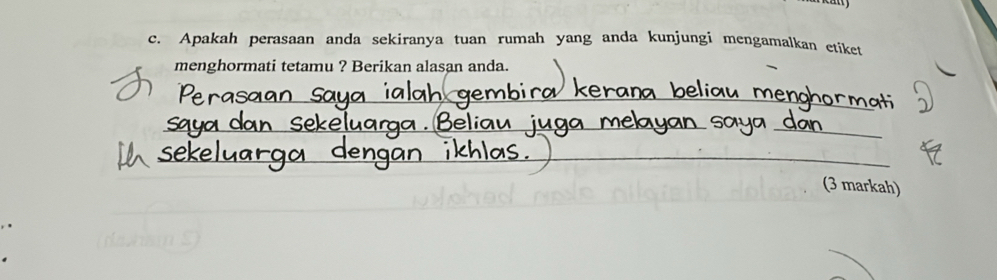 c. Apakah perasaan anda sekiranya tuan rumah yang anda kunjungi mengamalkan etiket
menghormati tetamu ? Berikan alasan anda.
Perasaan saya ialah (gembira) kerana beliau menghormati
saya dan sekeluarga. (Beliau juga melayan saya dan
sekeluarga dengan ikhlas.)
(3 markah)